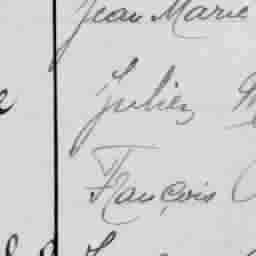 Jean Marie
Julien
François